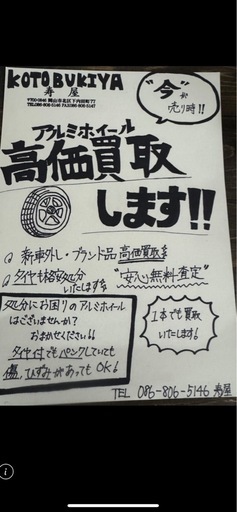 KOTOBUKIYA
寿屋
〒700-0846 岡山市北区下内田町77
TEL086-806-5146 FAX086-806-5147
"今"が
売り時!!
アルミホイール
高価買取
します!!
新車外し・ブランド品 高価買取を
タイヤも格安処分
いたします
"安心無料査定"
処分にお困りのアルミホイール
はございませんか?
おまかせください!!
タイヤ付でもパンクしていても
傷、ひずみがあってもOK!
1本でも買取
いたします!
TEL 086-806-5146 寿屋